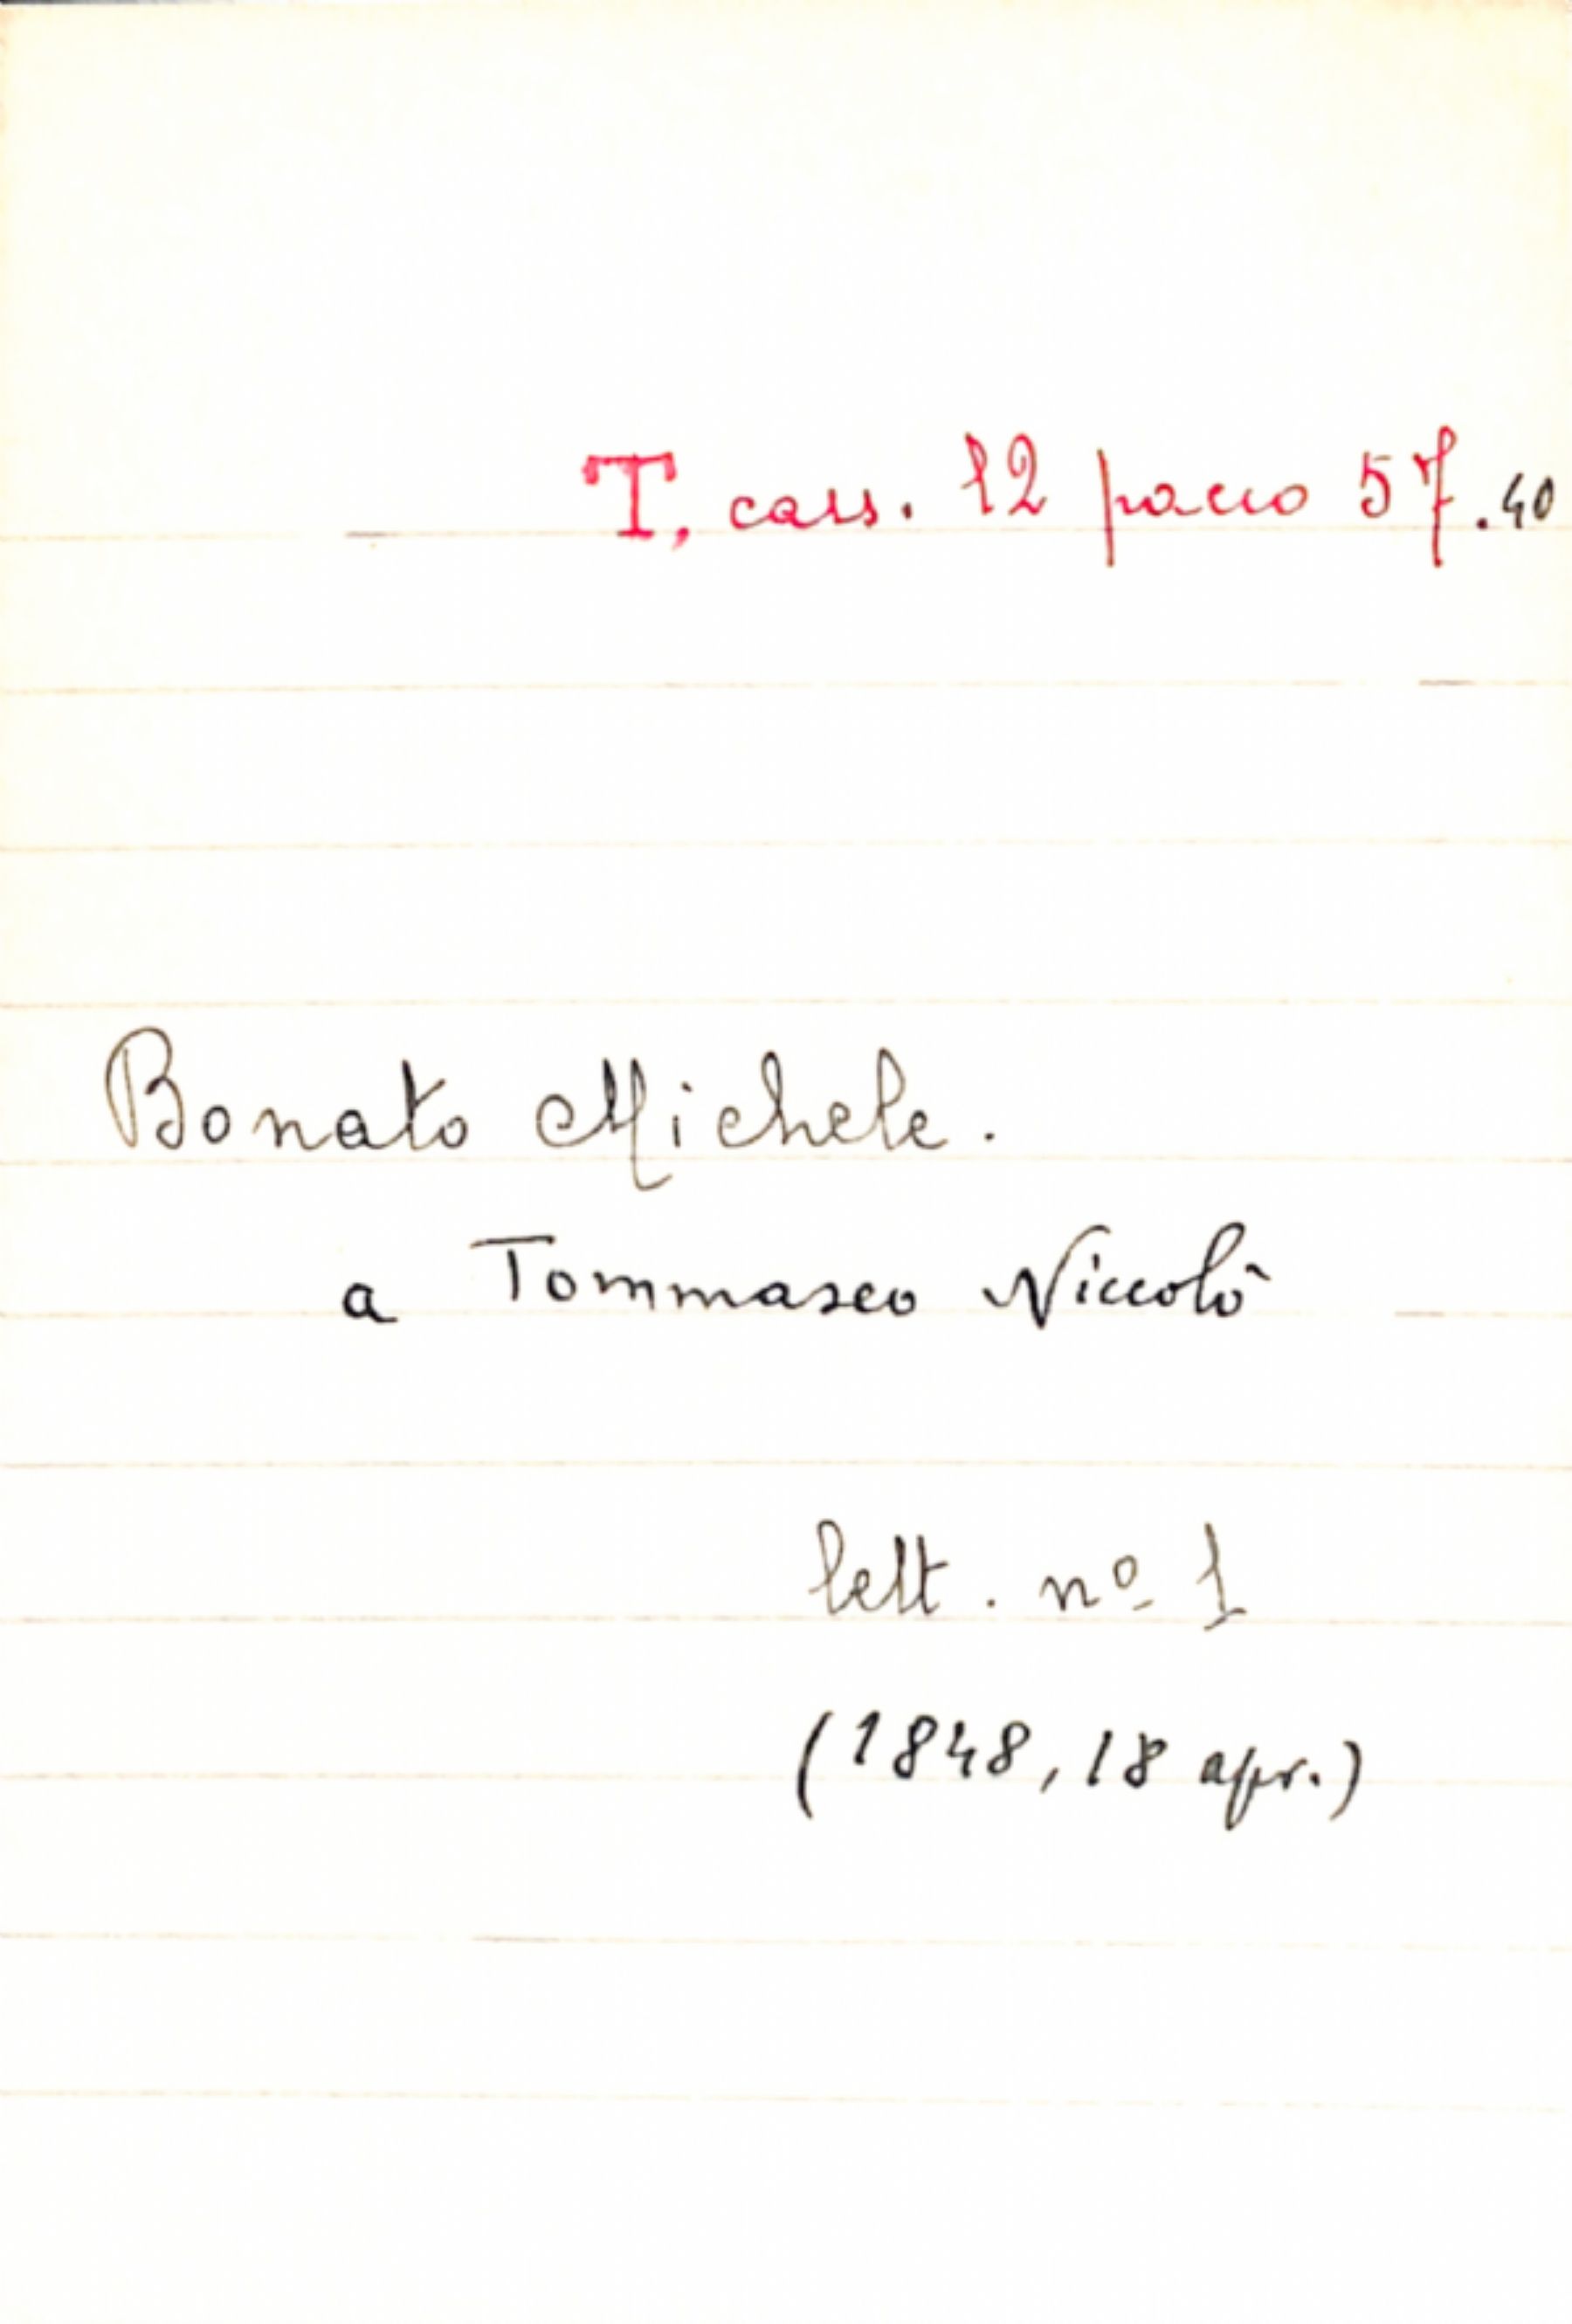 T, cass. 12 pacco 57.40
Bonato Michele.
a Tommaseo Niccolò
lett. nº 1
(1848, 18 apr.)